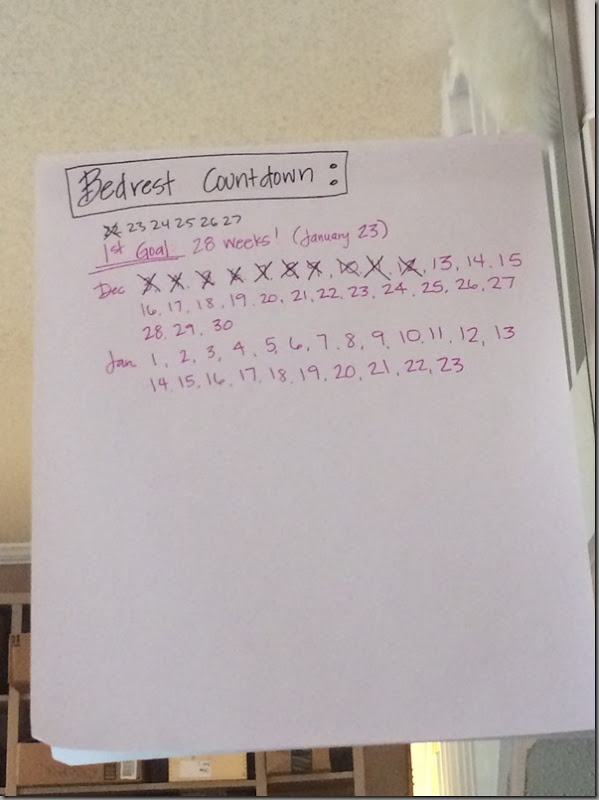 Bedrest Countdown:
23 24 25 26 27
1st Goal 28 weeks! (January 23)
Dec 13, 14, 15
16, 17, 18, 19, 20, 21, 22, 23, 24, 25, 26, 27
28, 29, 30
Jan 1, 2, 3, 4, 5, 6, 7, 8, 9, 10, 11, 12, 13
14, 15, 16, 17, 18, 19, 20, 21, 22, 23